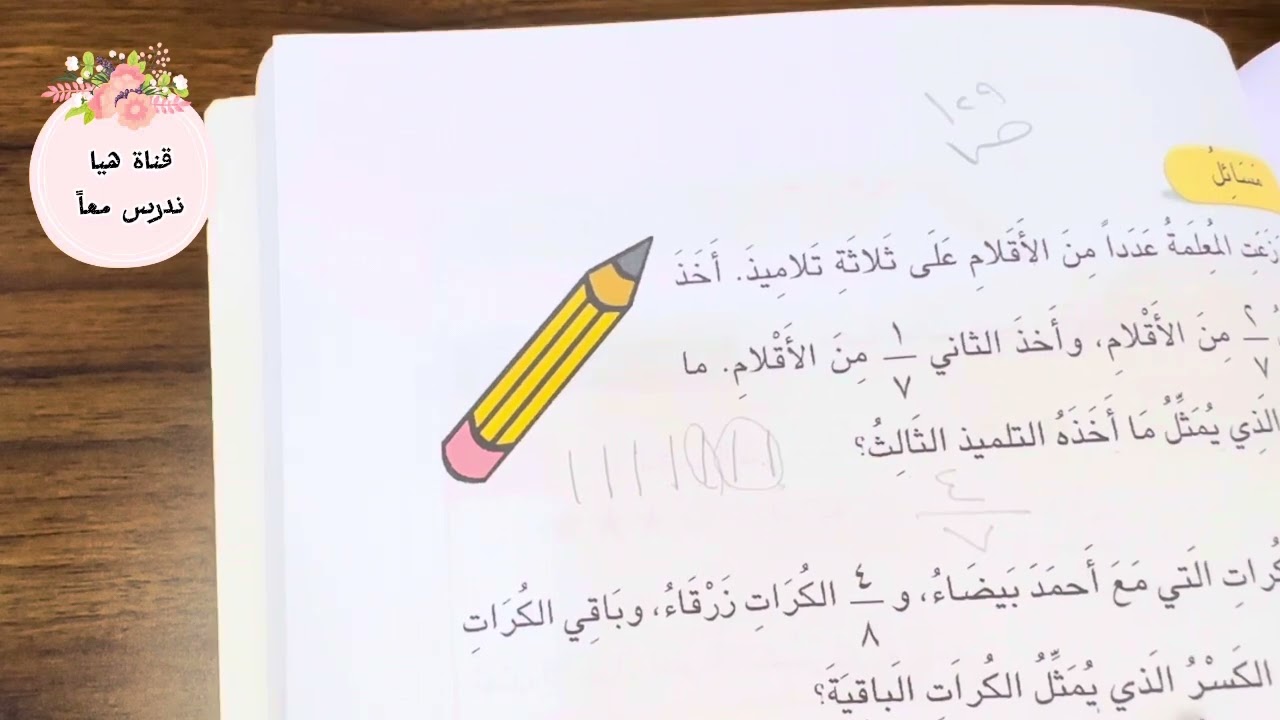 قناة هيا
ندرس معاً
١٢٩
ص
مَسَائِلُ
المُعِلَمةُ عَدَداً مِنَ الأَقَلامِ عَلَى ثَلاثَةِ تَلامِيذَ. أَخَذَ
٢/٧ مِنَ الأَقْلامِ، وأَخذَ الثاني ١/٧ مِنَ الأَقْلامِ. ما
الَذِي يُمَثِّلُ مَا أَخَذَهُ التلميذ الثَالِثُ؟
٤/٧
الَتي مَعَ أَحمَدَ بَيضَاءُ، و ٤/٨ الكُرَاتِ زَرْقَاءُ، وبَاقِي الكُرَاتِ
الكَسْرُ الَذي يُمَثِّلُ الكُراَتِ الَباقيَةَ؟